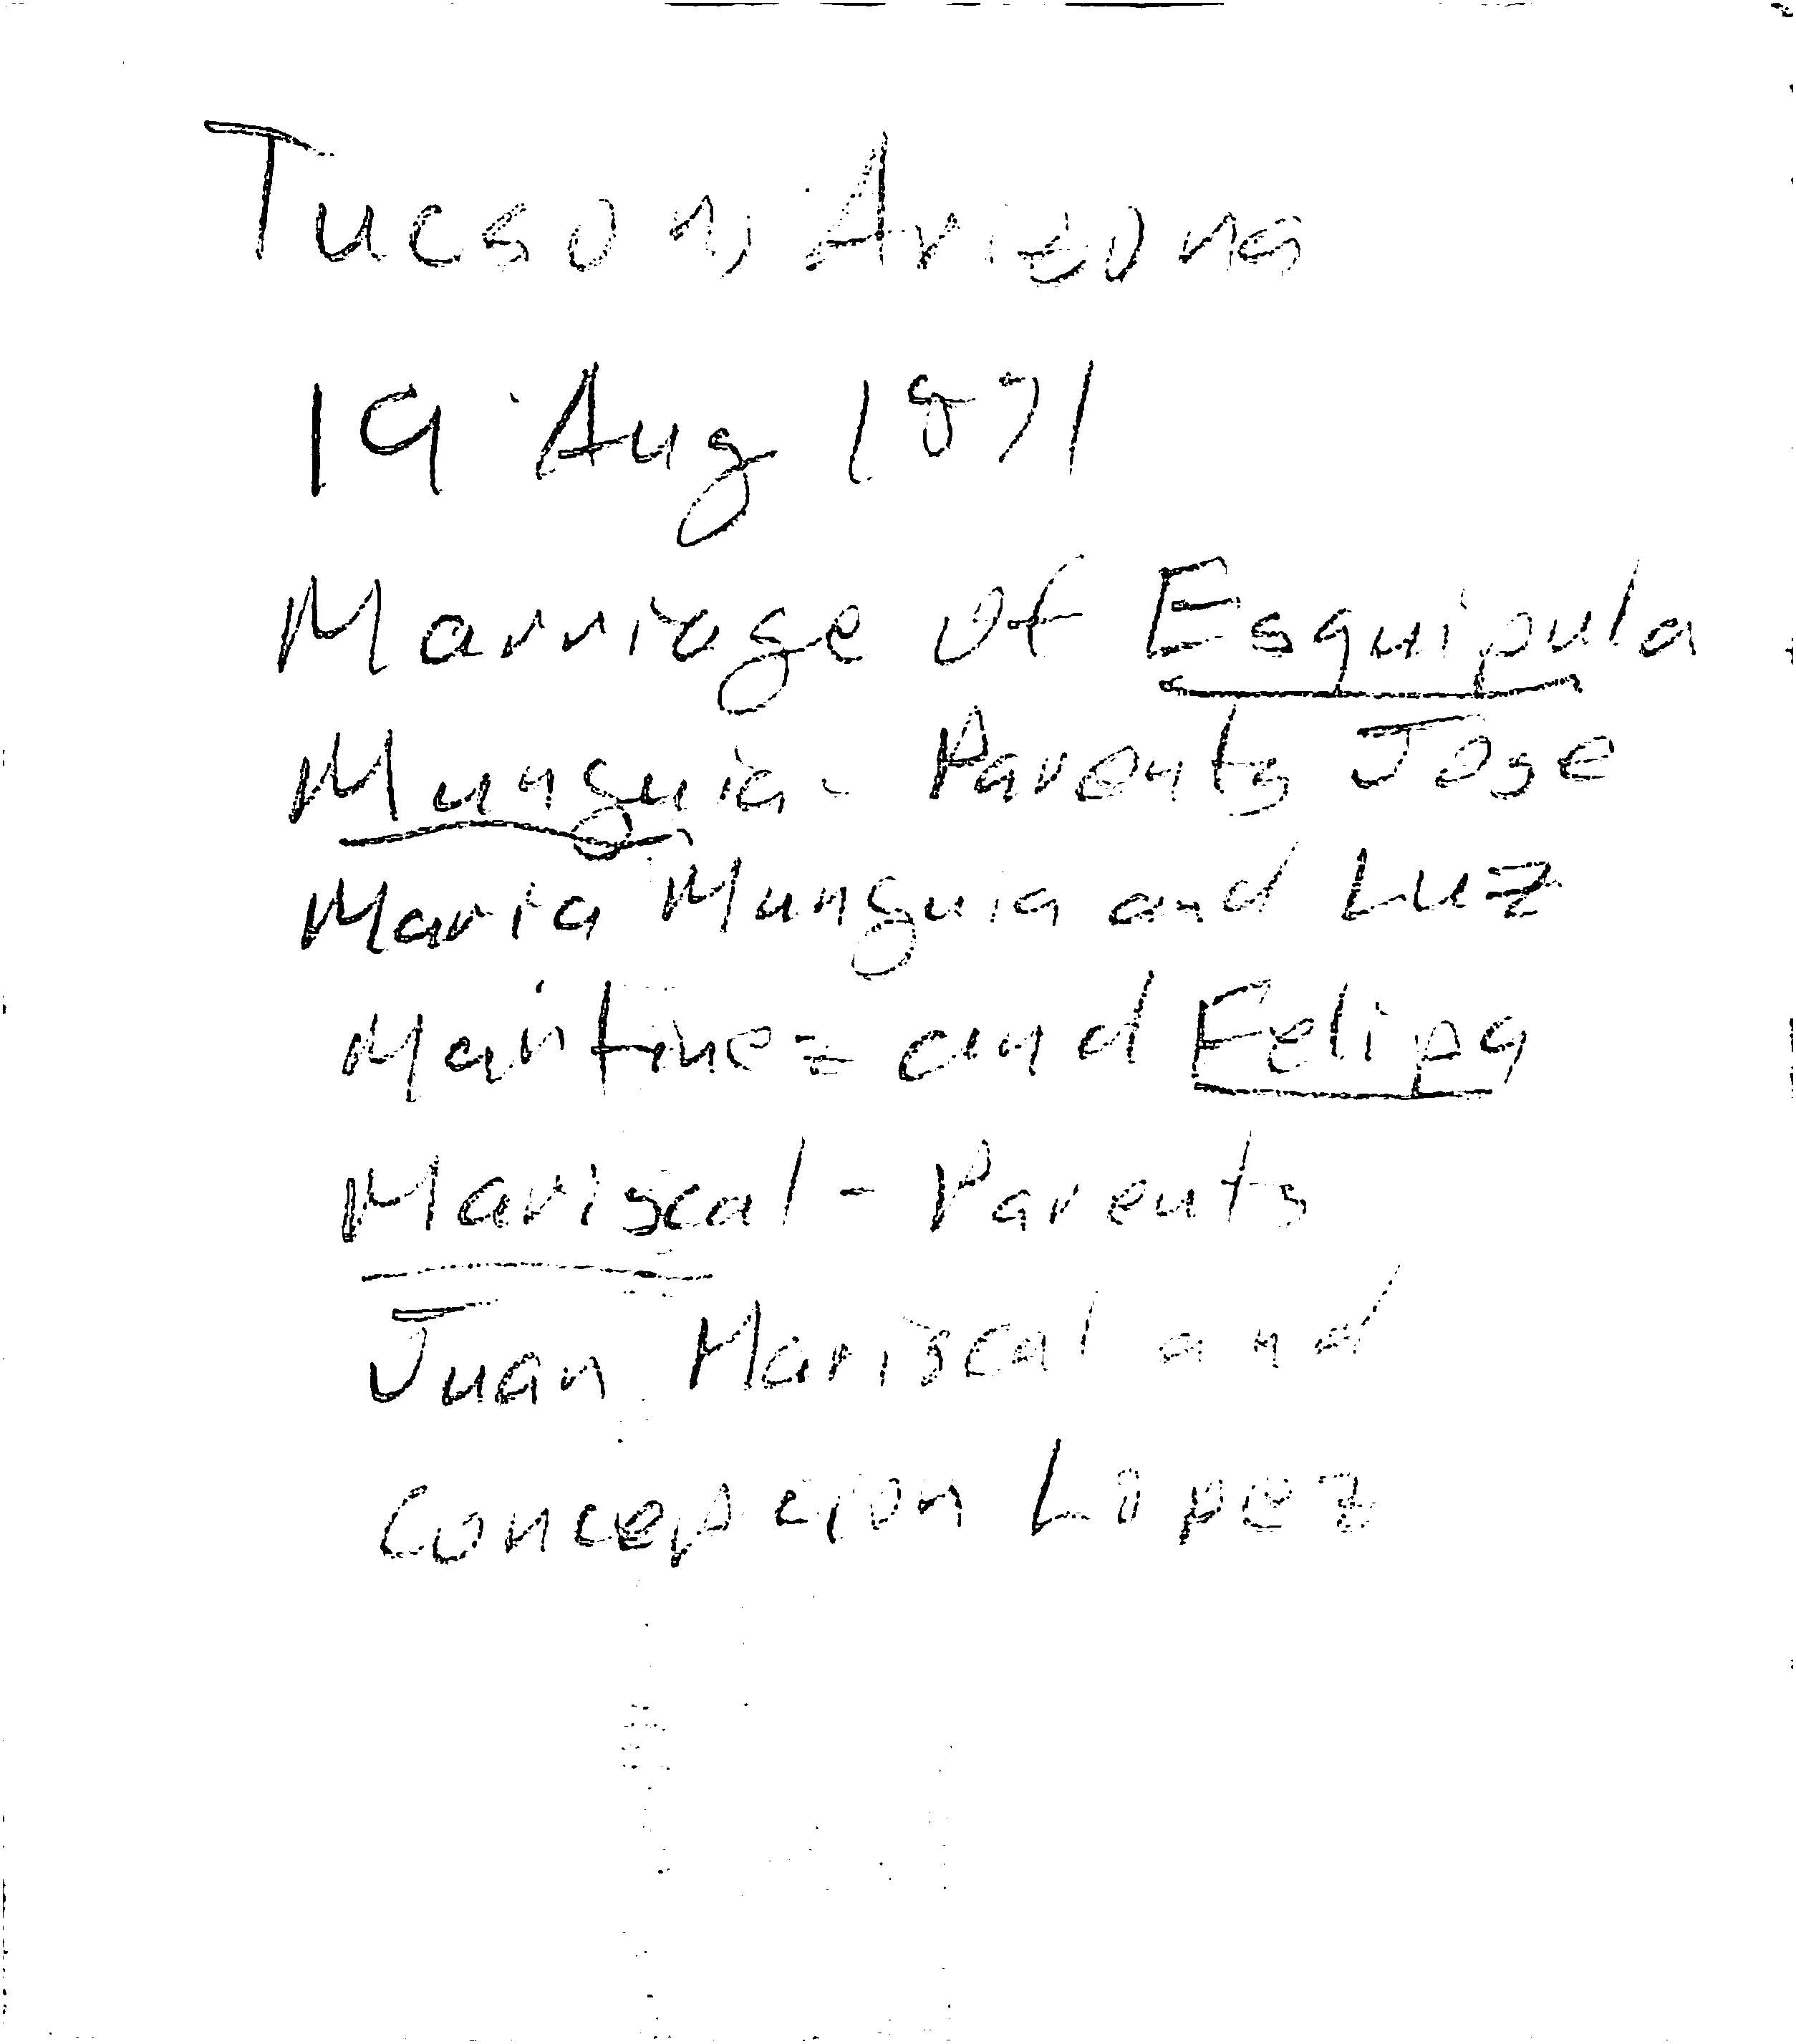 Tucson, Arizona
19 Aug 1871
Marriage of Esquipula
Munguia - Parents Jose
Maria Munguia and Luz
Martinez and Felipa
Mariscal - Parents
Juan Mariscal and
Concepcion Lopez